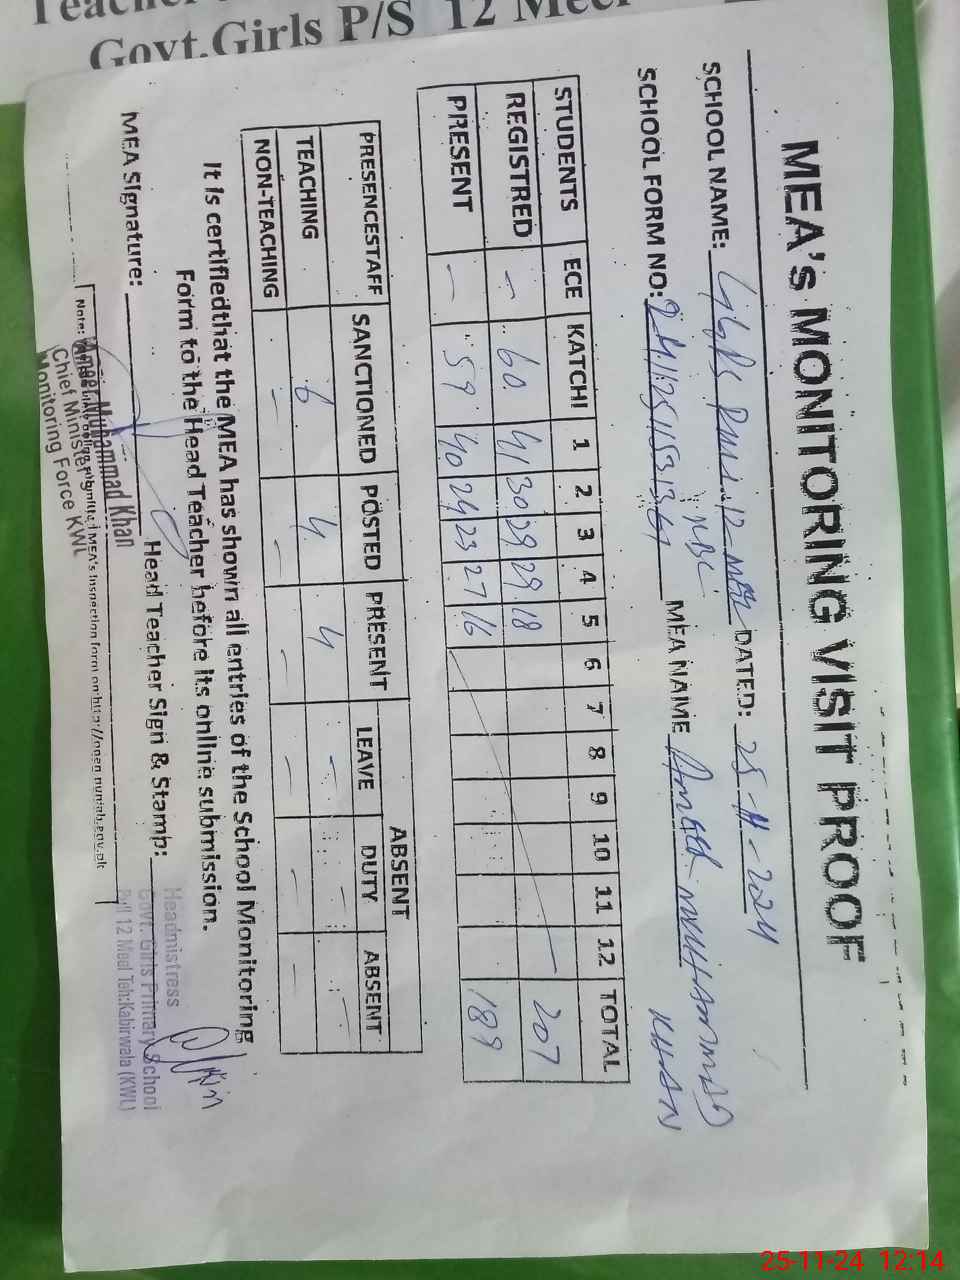 Govt.Girls P/S 12 Meel
MEA's MONITORING VISIT PROOF
SCHOOL NAME: GGPS Pull 12-Meel DATED: 25-11-2024
KBC
SCHOOL FORM NO: MEA NAME Ameer MUHAMMAD
KHAN
STUDENTS ECE KATCHI 1 2 3 4 5 6 7 8 9 10 11 12 TOTAL
REGISTRED - 60 41 30 29 29 18 207
PRESENT - 59 40 24 23 27 16 189
PRESENCESTAFF SANCTIONED POSTED PRESENT ABSENT
LEAVE DUTY ABSENT
TEACHING 6 4 4 - - -
NON-TEACHING - - - - - -
It is certifiedthat the MEA has shown all entries of the School Monitoring
Form to the Head Teacher before its online submission.
MEA Signature: Head Teacher Sign & Stamp:
Headmistress
Govt. Girls Primary School
Pull 12 Meel Teh:Kabirwala (KWL)
Ameer Muhammad Khan
Chief Minister
Monitoring Force KWL
Note: MEA's Inspection form on:http://open.punjab.gov.pk
25-11-24 12:14